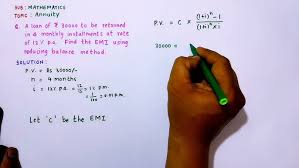 SUB: MATHEMATICS
TOPIC: Annuity
Q. A loan of ₹ 30000 to be returned
in 4 monthly installments at rate
of 12% p.a. Find the EMI using
reducing balance method.
SOLUTION:
P.V. = Rs 30000/-
n = 4 months
i = 12% p.a. = 12/12 = 1% p.m.
= 1/100 = 0.01 p.m.
Let 'c' be the EMI
P.V. = C × (1+i)ⁿ - 1 / (1+i)ⁿ × i
30000 =